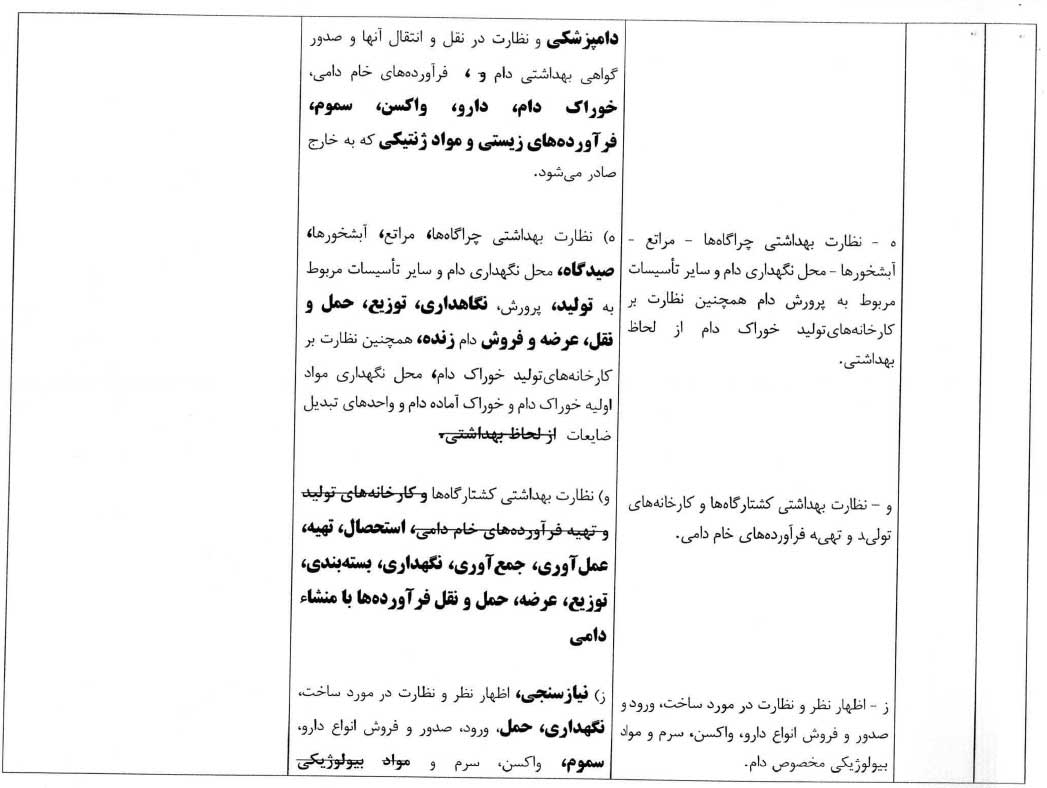 دامپزشکی و نظارت در نقل و انتقال آنها و صدور
گواهی بهداشتی دام و ، فرآورده‌های خام دامی،
خوراک دام، دارو، واکسن، سموم،
فرآورده‌های زیستی و مواد ژنتیکی که به خارج
صادر می‌شود.
ه - نظارت بهداشتی چراگاه‌ها - مراتع -
آبشخورها - محل نگهداری دام و سایر تأسیسات
مربوط به پرورش دام همچنین نظارت بر
کارخانه‌های‌تولید خوراک دام از لحاظ
بهداشتی.
ه) نظارت بهداشتی چراگاه‌ها، مراتع، آبشخورها،
صیدگاه، محل نگهداری دام و سایر تأسیسات مربوط
به تولید، پرورش، نگاهداری، توزیع، حمل و
نقل، عرضه و فروش دام زنده، همچنین نظارت بر
کارخانه‌های‌تولید خوراک دام، محل نگهداری مواد
اولیه خوراک دام و خوراک آماده دام و واحدهای تبدیل
ضایعات از لحاظ بهداشتی.
و - نظارت بهداشتی کشتارگاه‌ها و کارخانه‌های
تولید و تهیه فرآورده‌های خام دامی.
و) نظارت بهداشتی کشتارگاه‌ها و کارخانه‌های تولید
و تهیه فرآورده‌های خام دامی، استحصال، تهیه،
عمل‌آوری، جمع‌آوری، نگهداری، بسته‌بندی،
توزیع، عرضه، حمل و نقل فرآورده‌ها با منشاء
دامی
ز - اظهار نظر و نظارت در مورد ساخت، ورود و
صدور و فروش انواع دارو، واکسن، سرم و مواد
بیولوژیکی مخصوص دام.
ز) نیازسنجی، اظهار نظر و نظارت در مورد ساخت،
نگهداری، حمل، ورود، صدور و فروش انواع دارو،
سموم، واکسن، سرم و مواد بیولوژیکی